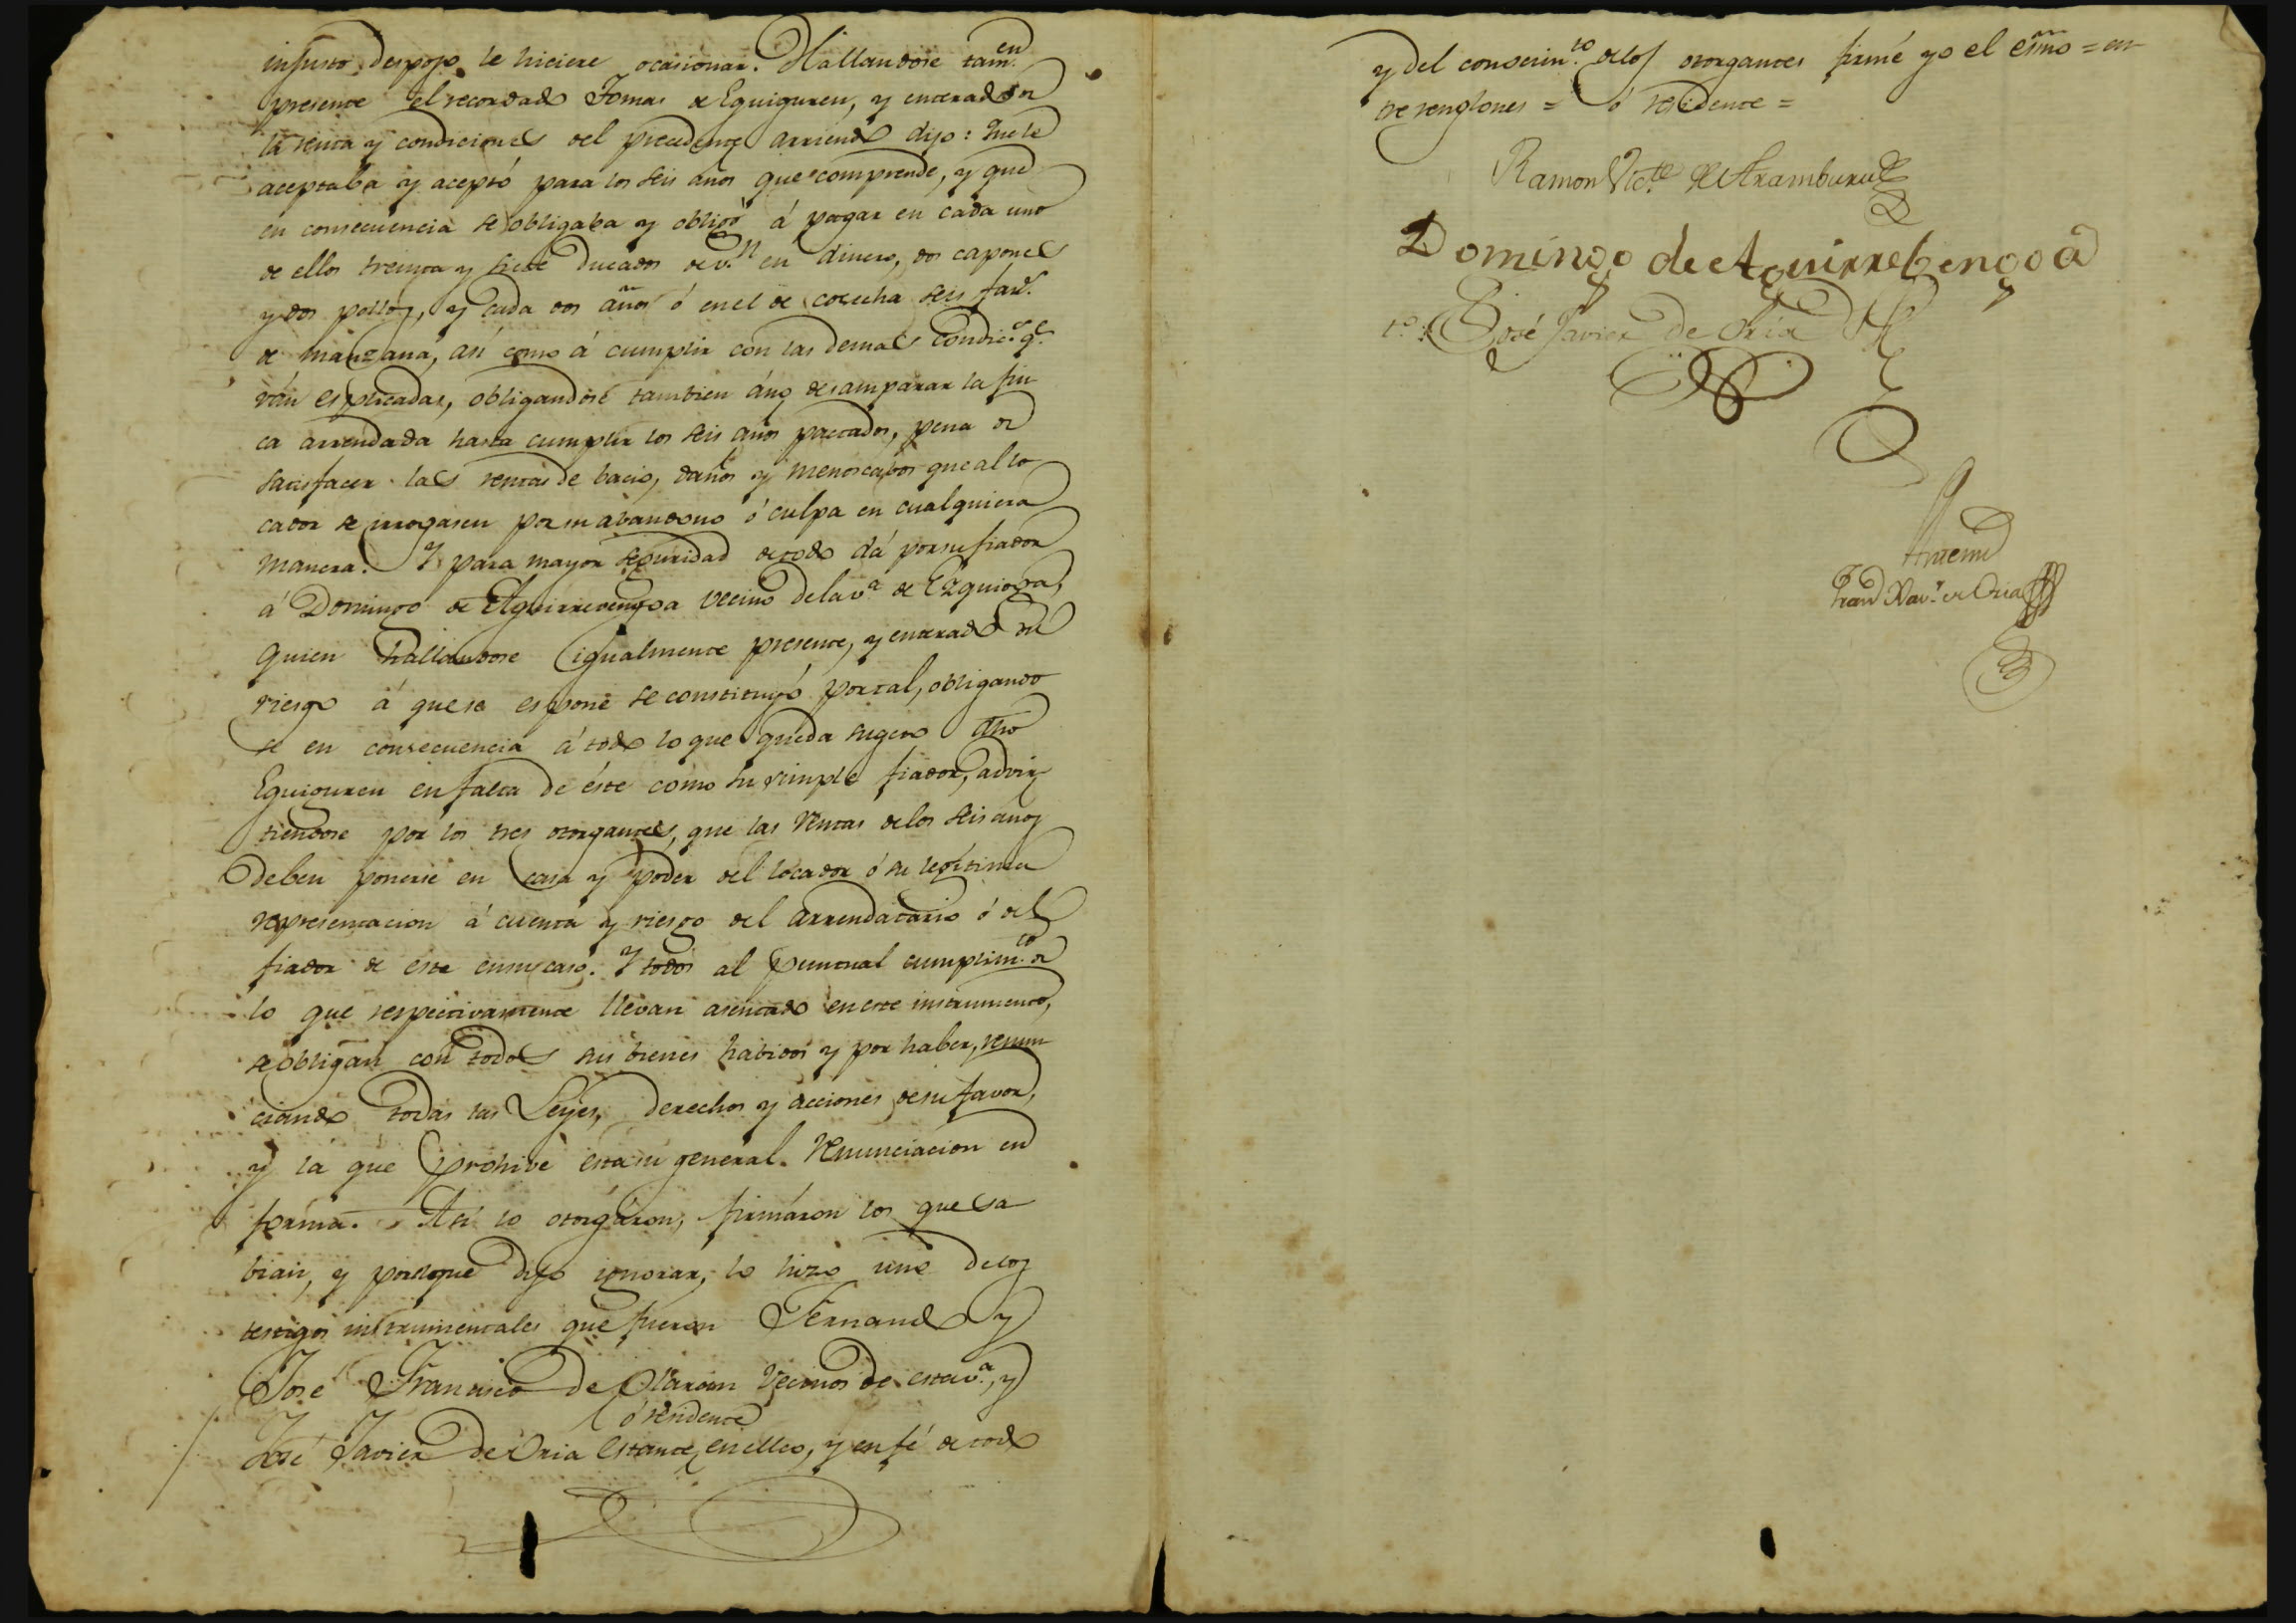 injusto despojo le hiciere ocasionar. Hallandose tamen.
presente el recordado Tomas de Eguiguren, y enterado de
la renta y condiciones del precedente arriendo dijo: Que le
aceptaba y aceptó para los seis años que comprende, y que
en consecuencia se obligaba y obligó á pagar en cada uno
de ellos treinta y siete ducados de v.n en dinero, dos capones
y dos pollos, y cada dos años ó en el de cosecha seis fan.s
de manzana, así como á cumplir con las demas condic.s q.e
ván esplicadas, obligandose tambien á no desamparar la fin
ca arrendada hasta cumplir los seis años pactados, pena de
satisfacer las rentas de bacio, daños y menoscabos que al lo
cador se irrogasen por su abandono ó culpa en cualquiera
manera. Y para mayor seguridad de todo dá por su fiador
á Domingo de Aguirrebengoa vecino de la v.a de Ezquioga,
quien hallandose igualmente presente, y enterado del
riesgo á que se espone se constituyó por tal, obligando
se en consecuencia á todo lo que queda sugeto dho
Eguiguren en falta de éste como su simple fiador, advir
tiendose por los tres otorgantes, que las rentas de los seis años
deben ponerse en casa y poder del locador ó su legítima
representacion á cuenta y riesgo del arrendatario ó del
fiador de este en su caso. Y todos al puntual cumplim.to de
lo que respectivamente llevan asentado en este instrumento,
se obligan con todos sus bienes habidos y por haber, renun
ciando todas las Leyes, derechos y acciones de su favor,
y la que prohibe esta su general renunciacion en
forma. Así lo otorgáron, firmáron los que sa
bian, y por el que dijo ignorar, lo hizo uno de los
testigos instrumentales que fueron Fernando y
José Francisco de Olaran vecinos de esta v.a, y
ó residente
José Javier de Oria estante en ella, y en fé de todo
y del consentim.to de los otorgantes firmé yo el esñno = en
tre renglones = ó residente =
Ramon Vic.te de Aramburu
Domingo de Aguirrebengoa
t.o José Javier de Oria
Antemi
Fran.co Xav.r de Oria